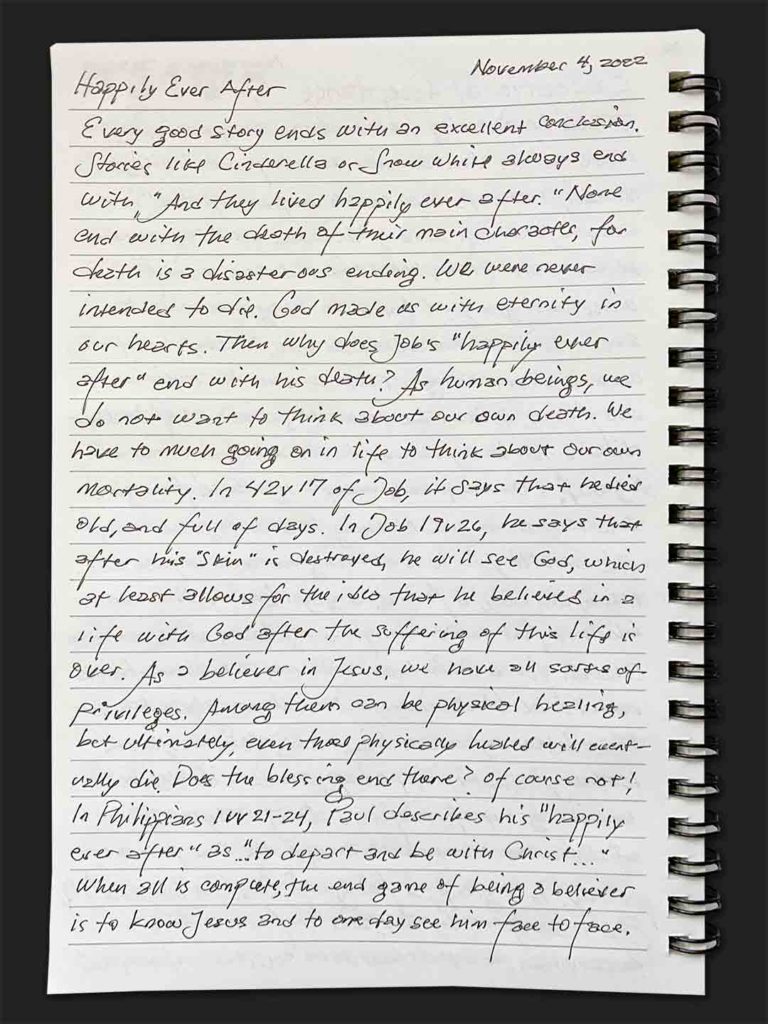 November 4, 2022
Happily Ever After
Every good story ends with an excellent conclusion.
Stories like Cinderella or Snow white always end
with, "And they lived happily ever after." None
end with the death of their main character, for
death is a disasterous ending. We were never
intended to die. God made us with eternity in
our hearts. Then why does Job's "happily ever
after" end with his death? As human beings, we
do not want to think about our own death. We
have to much going on in life to think about our own
mortality. In 42v17 of Job, it says that he died
old, and full of days. In Job 19v26, he says that
after his "skin" is destroyed, he will see God, which
at least allows for the idea that he believed in a
life with God after the suffering of this life is
over. As a believer in Jesus, we have all sorts of
privileges. Among them can be physical healing,
but ultimately, even those physically healed will event-
ually die. Does the blessing end there? Of course not!
In Philippians 1vv21-24, Paul describes his "happily
ever after" as "...to depart and be with Christ..."
When all is complete, the end game of being a believer
is to know Jesus and to one day see him face to face.